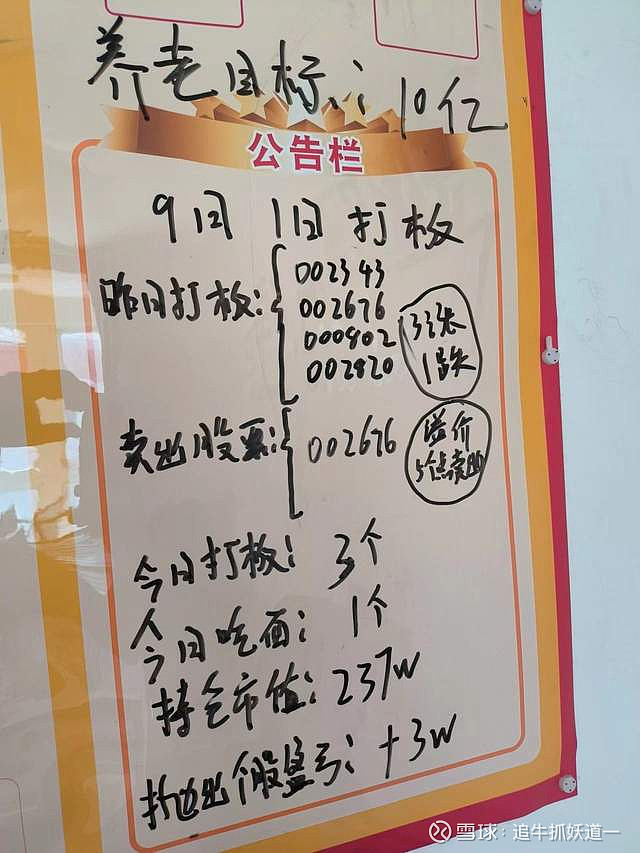 养老目标：10亿
公告栏
9月1日打板
昨日打板：
002343
002676
000902
002820
3涨
1跌
卖出股票：
002676
溢价
5个点卖出
今日打板：3个
今日吃面：1个
持仓市值：237w
抛出个股盈亏：+3w
雪球：追牛抓妖道一